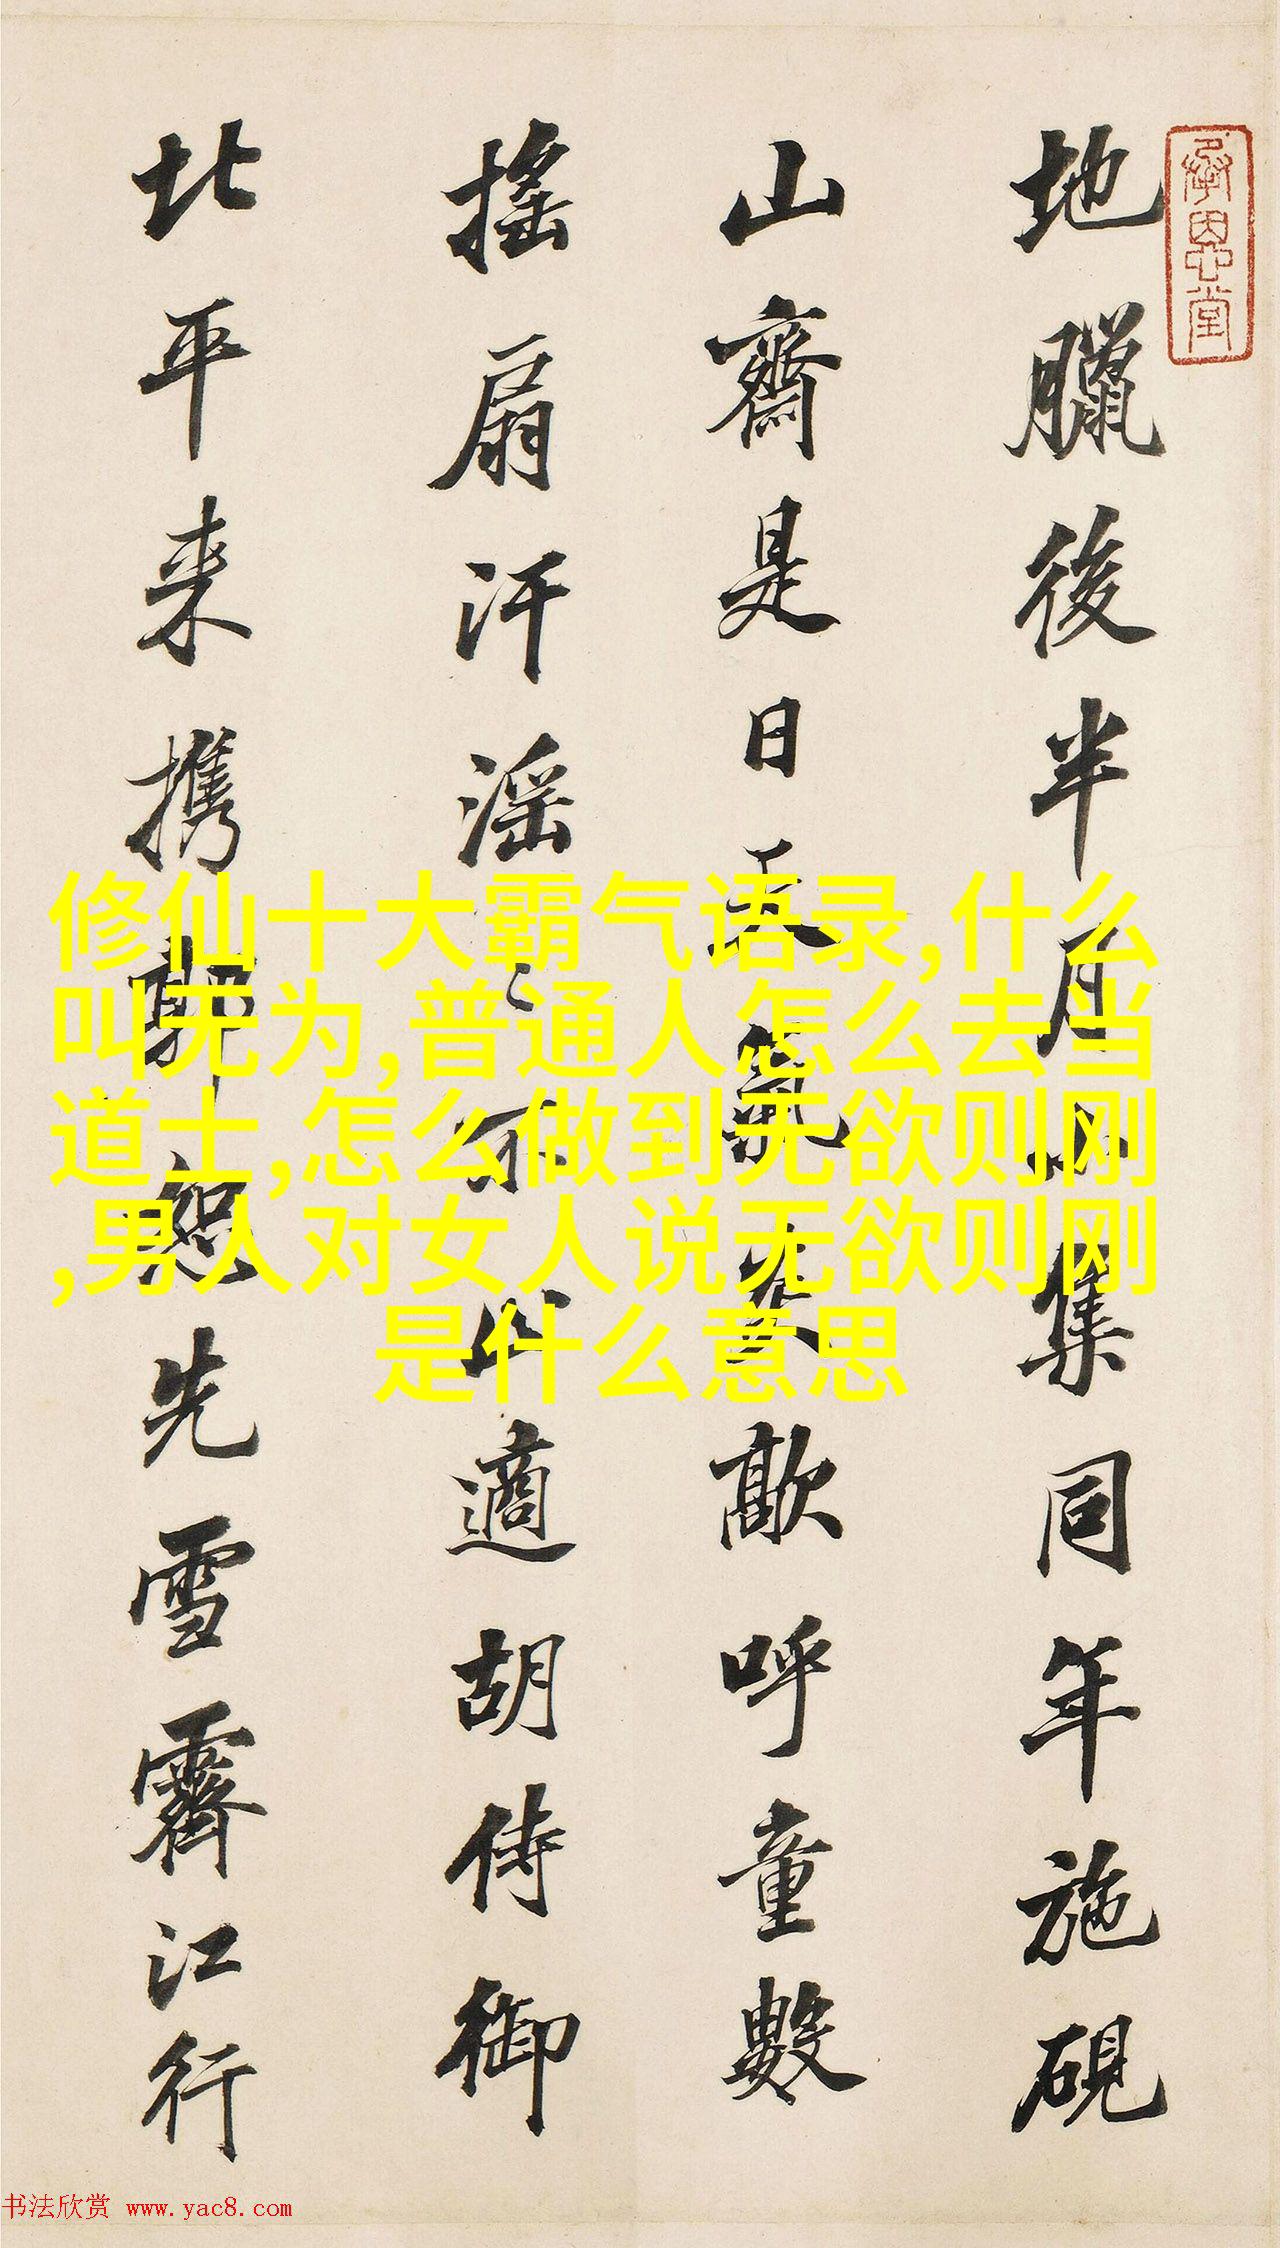 地臘後半月小集同年施硯
山齋是日天氣炎歊呼童數
搖扇汗淫〻不以適胡侍御
北平来携郭恕先雪霽江行
承恩堂
修仙十大霸气语录,什么
叫无为,普通人怎么去当
道士,怎么做到无欲则刚
,男人对女人说无欲则刚
是什么意思
书法欣赏 www.yac8.com